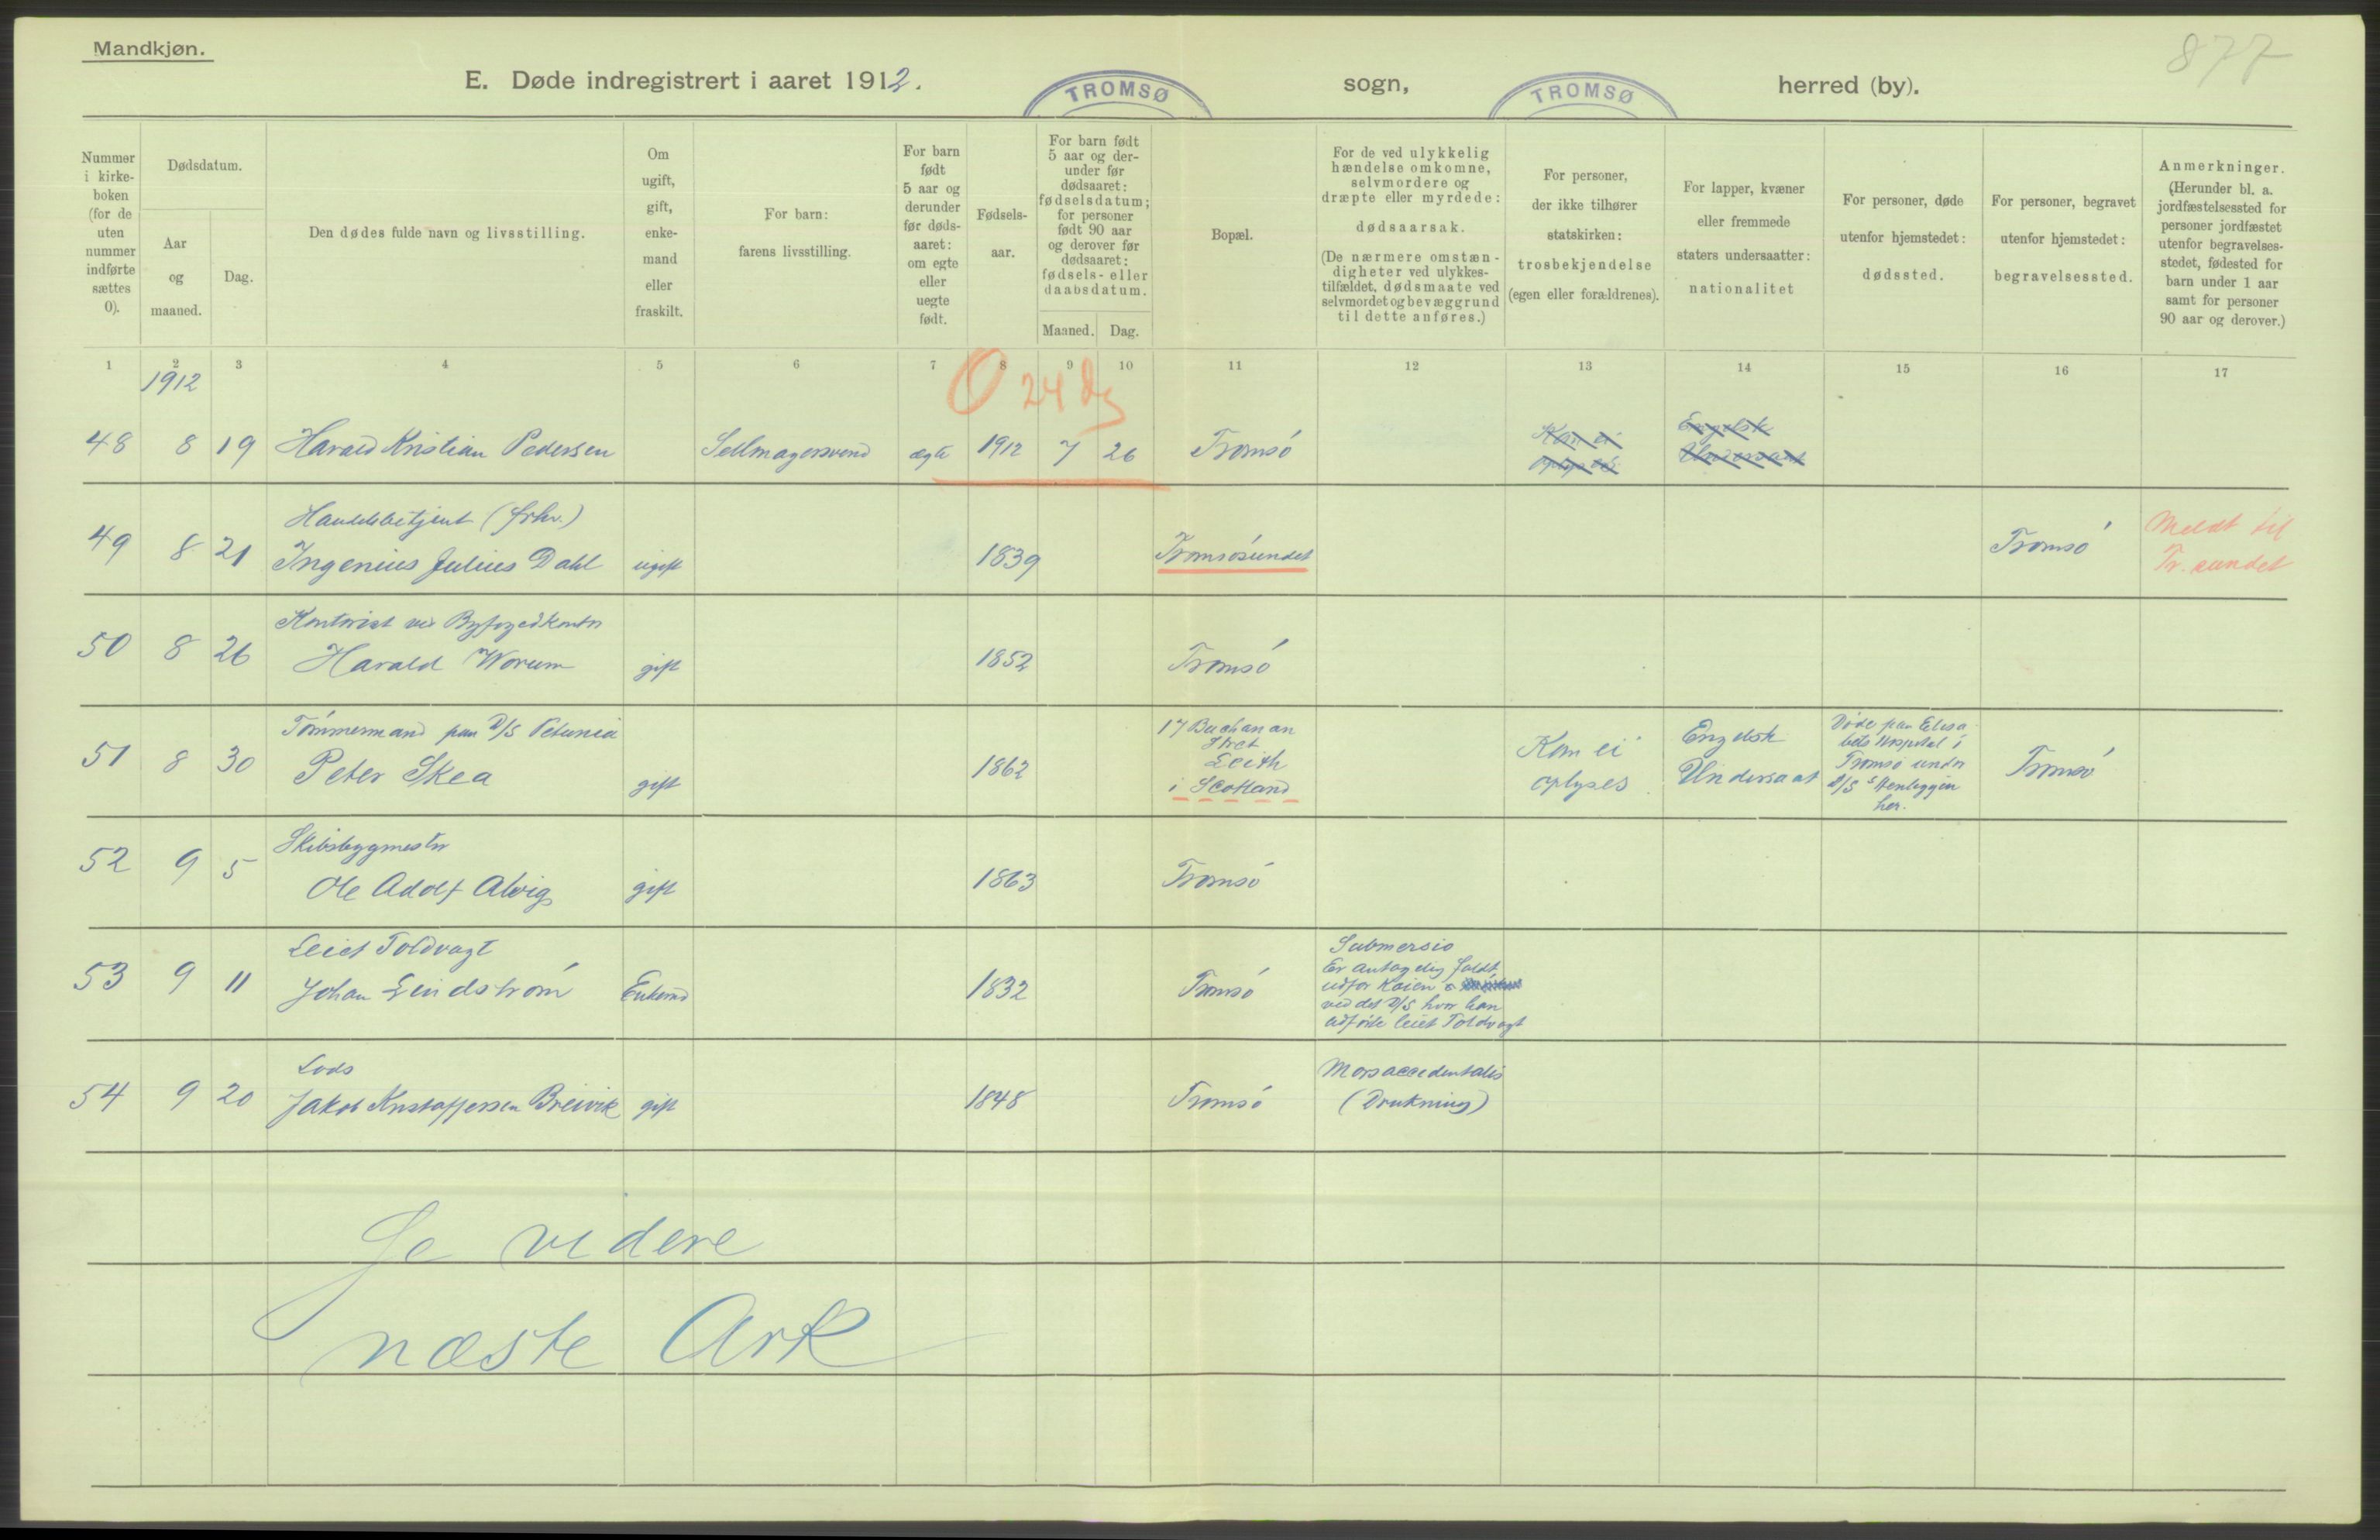 Mandkjøn.
877
E. Døde indregistrert i aaret 1912. TROMSØ sogn, TROMSØ herred (by).
Nummer i kirke-boken (for de uten nummer indførte sættes 0).
Dødsdatum.
Aar og maaned.
Dag.
Den dødes fulde navn og livsstilling.
Om ugift, gift, enke-mand eller fraskilt.
For barn: farens livsstilling.
For barn født 5 aar og derunder før døds-aaret: om egte eller uegte født.
Fødsels-aar.
For barn født 5 aar og der-under før dødsaaret: fødselsdatum; for personer født 90 aar og derover før dødsaaret: fødsels- eller daabsdatum.
Maaned. Dag.
Bopæl.
For de ved ulykkelig hændelse omkomne, selvmordere og dræpte eller myrdede: dødsaarsak.
(De nærmere omstæn-digheter ved ulykkes-tilfældet, dødsmaate ved selvmordet og bevæggrund til dette anføres.)
For personer, der ikke tilhører statskirken: trosbekjendelse (egen eller forældrenes).
For lapper, kvæner eller fremmede staters undersaatter: nationalitet
For personer, døde utenfor hjemstedet: dødssted.
For personer, begravet utenfor hjemstedet: begravelsessted.
Anmerkninger. (Herunder bl. a. jordfæstelsessted for personer jordfæstet utenfor begravelses-stedet, fødested for barn under 1 aar samt for personer 90 aar og derover.)
1 2 3 4 5 6 7 8 9 10 11 12 13 14 15 16 17
1912
0 24 dg
48 8 19 Harald Kristian Pedersen Sellmagersvend ægte 1912 7 26 Tromsó Kan ei oplyses Engelsk Undersaat
Handelsbetjent (frhv.)
49 8 21 Ingenius Julius Dahl ugift 1839 Tromsósundet Tromsó Meldt til Tr.sundet
Kontorist ved Byfogedkontor
50 8 26 Harald Worum gift 1852 Tromsó
Tómmermand paa D/S Petunia
51 8 30 Peter Skea gift 1862 17 Buchanan Stret Leith i Scotland Kan ei oplyses Engelsk Undersaat Døde paa Elisabets Hospital i Tromsó under D/S's Henliggen her. Tromsó
Skibsbygmester
52 9 5 Ole Adolf Alvig gift 1863 Tromsó
Leiet Toldvagt
53 9 11 Johan Lindstróm Enkemd 1832 Tromsó Submersio
Er antagelig faldt
udfor Kaien
ved det D/S hvor han
udførte leiet Toldvagt
Lods
54 9 20 Jakob Kristoffersen Breivik gift 1848 Tromsó Mors accedentalis
(Drukning)
Se videre
næste Ark